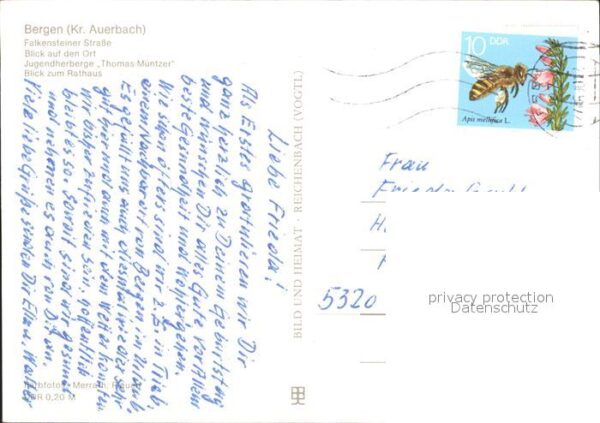 Bergen (Kr. Auerbach)
Falkensteiner Straße
Blick auf den Ort
Jugendherberge „Thomas Müntzer"
Blick zum Rathaus
10 DDR
Apis mellifica L.
Liebe Frieda!
Als Erster gratulieren wir Dir
ganz herzlich zu Deinem Geburtstag
und wünschen Dir alles Gute vor allem
beste Gesundheit und Wohlergehen.
Wie schon öfters sind wir z. Zt. in Trieb,
einem Nachbarort von Bergen, in Urlaub.
Es gefällt uns auch diesmal wieder sehr
gut hier und auch mit dem Wetter konnten
wir bisher zufrieden sein, hoffentlich
bleibt es so. Soweit sind wir gesund
und nehmen es auch von Dir an.
Viele liebe Grüße senden Dir Walter
BILD UND HEIMAT · REICHENBACH (VOGTL)
Frau
Frieda
5320
privacy protection
Datenschutz
Merrath
0,20 M